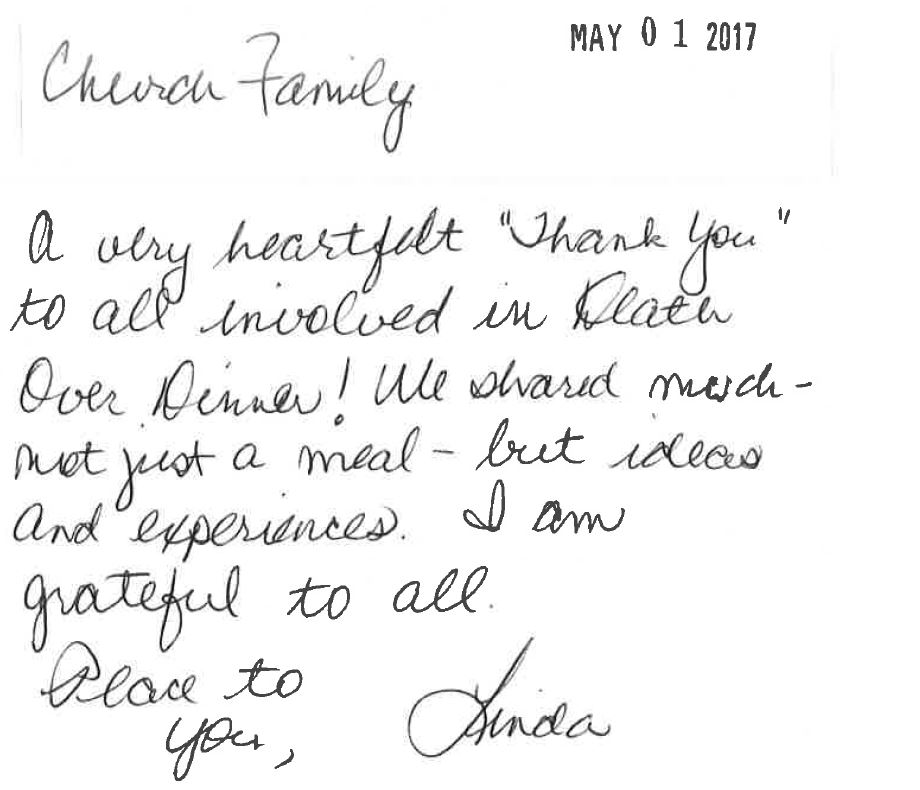 MAY 01 2017
Church Family
A very heartfelt "Thank You"
to all involved in Death
Over Dinner! We shared much -
not just a meal - but ideas
and experiences. I am
grateful to all.
Peace to
you,
Linda